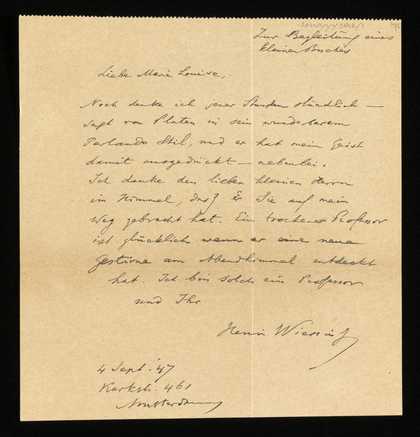 Zur Begleitung eines
kleinen Buches
Liebe Marie Louise,
Noch denke ich jener Stunden stündlich —
sagt von Platen in sein wunderbarem
Parlando Stil, und er hat mein Geist
damit ausgedrückt — nebenbei.
Ich danke den lieben kleinen Herrn
im Himmel, dasz Er Sie auf mein
Weg gebracht hat. Ein trockener Professor
ist glücklich wenn er eine neue
Gestirne am Abendhimmel entdeckt
hat. Ich bin solch ein Professor
und Ihr
Henri Wiessing
4 Sept. '47
Kerkstr. 461
Amsterdam